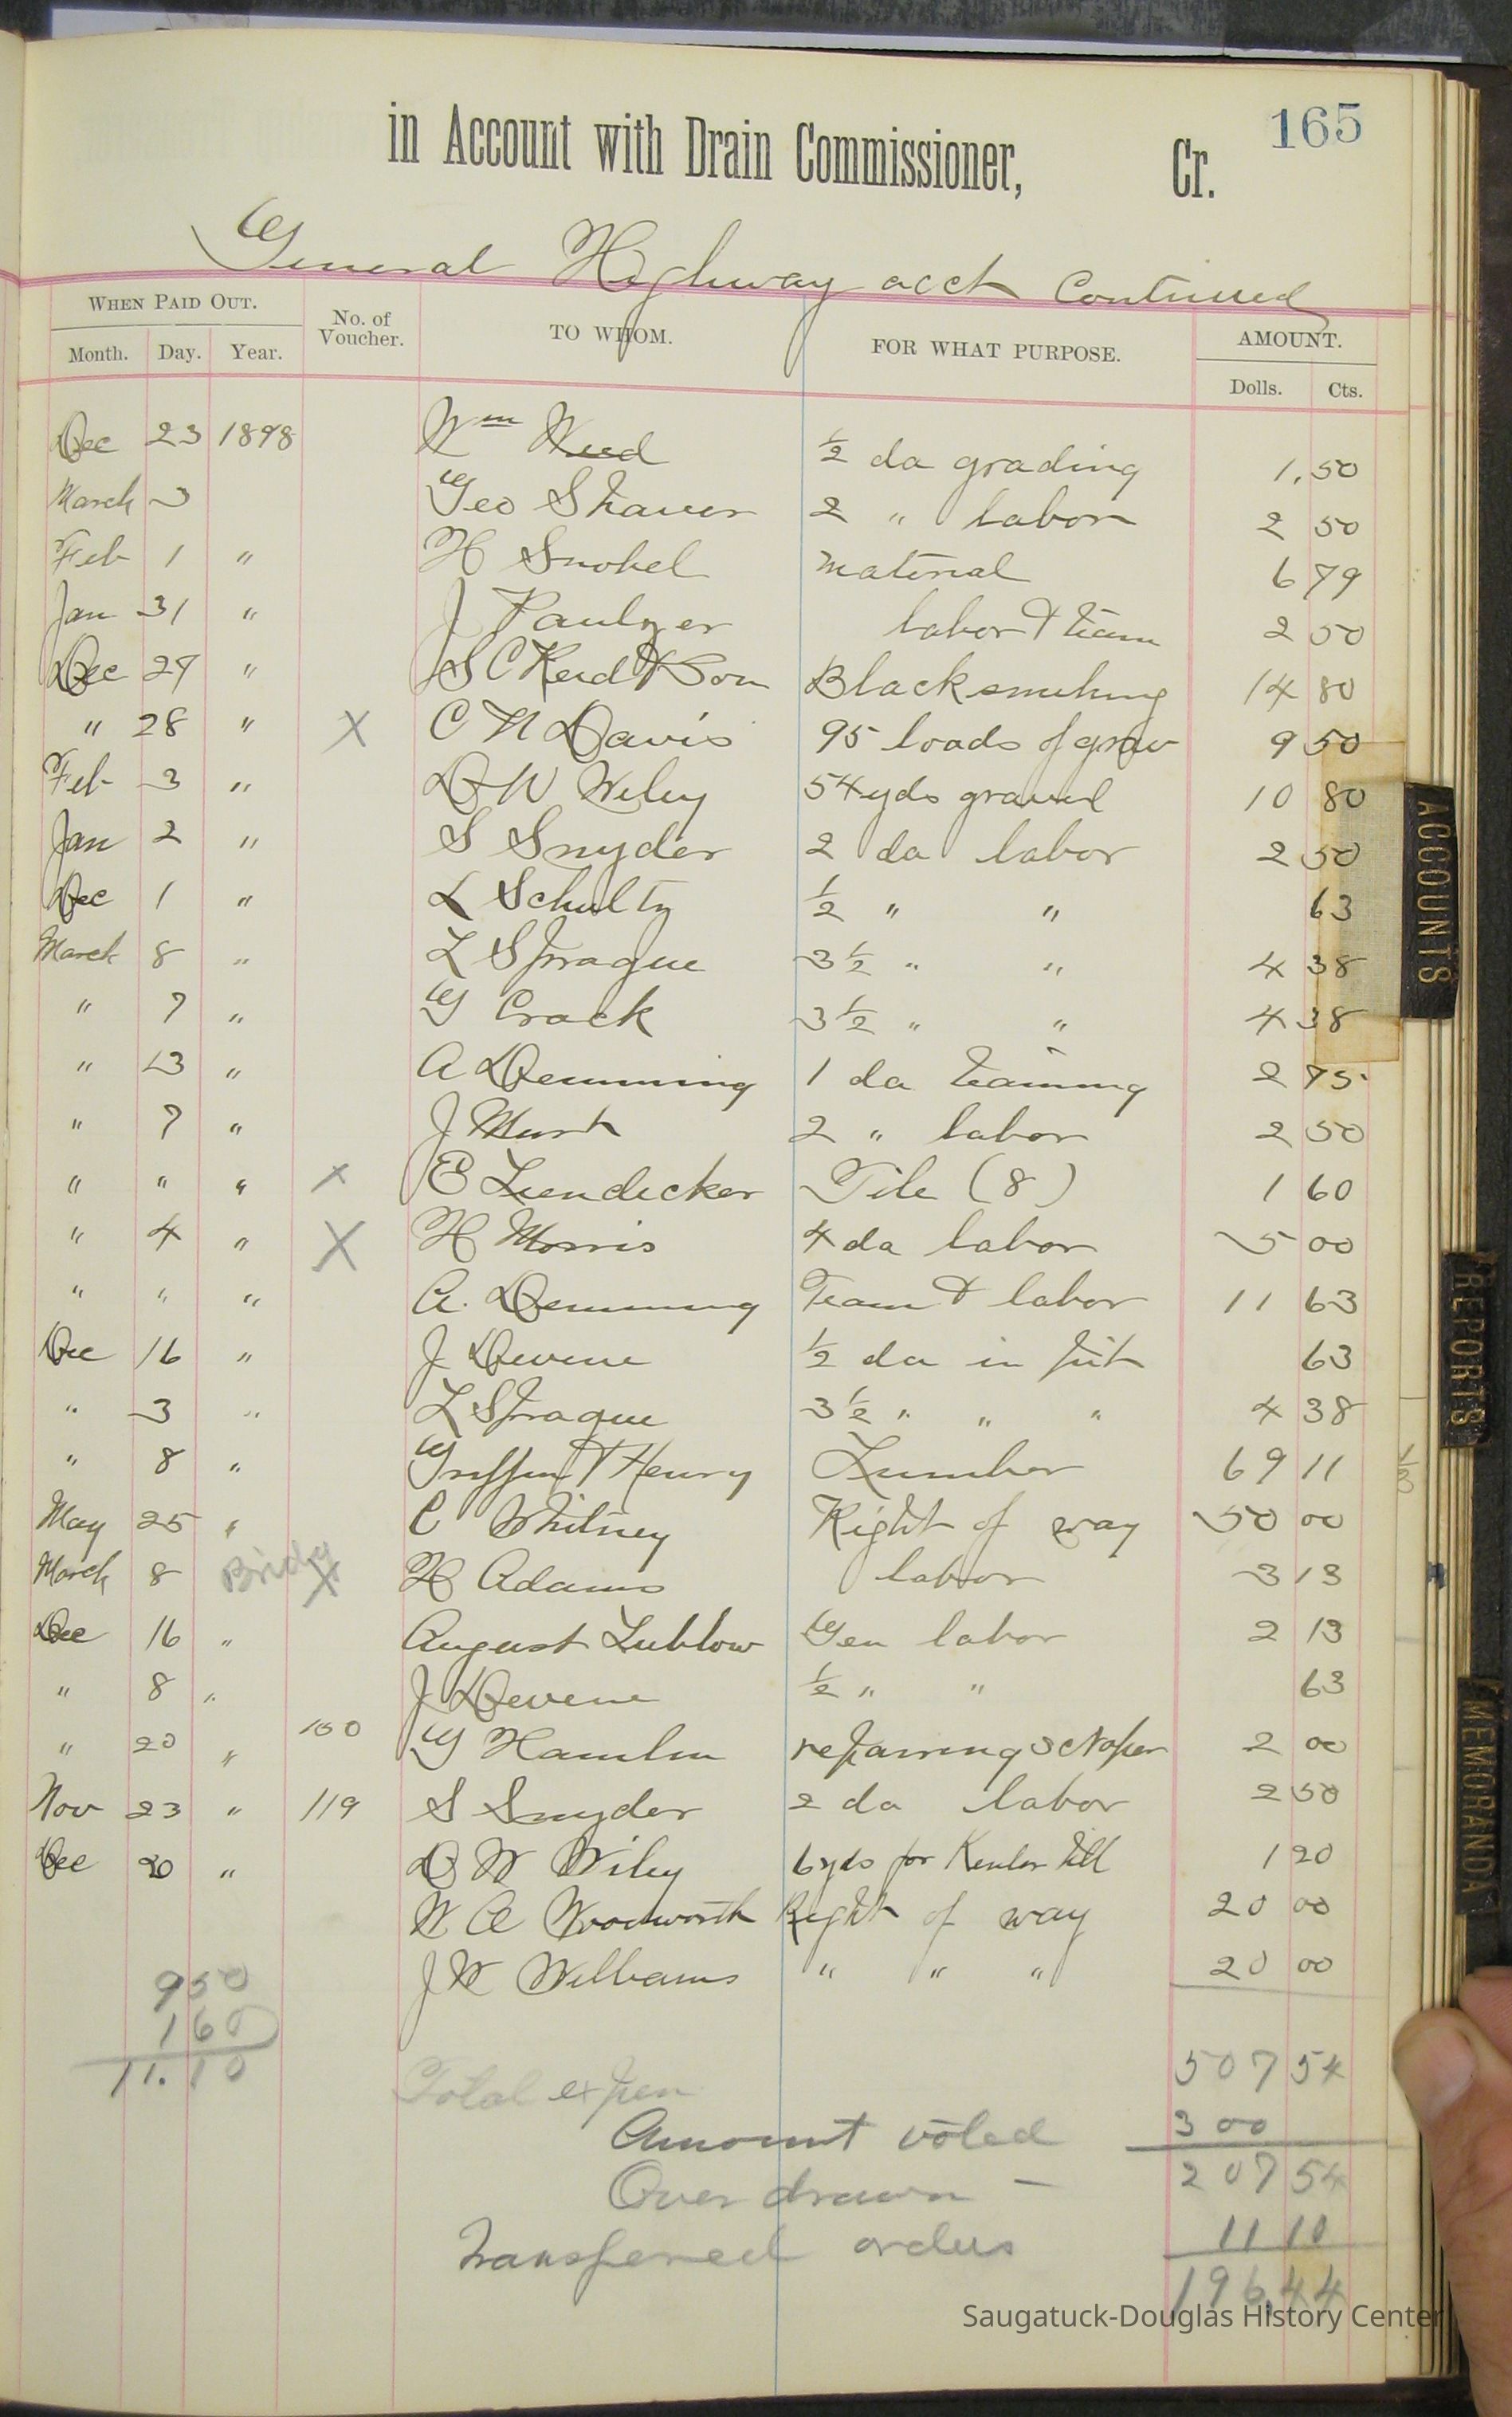 165
in Account with Drain Commissioner, Cr.
General Highway acct Continued
WHEN PAID OUT. No. of Voucher. TO WHOM. FOR WHAT PURPOSE. AMOUNT.
Month. Day. Year. Dolls. Cts.
Dec 23 1898 Wm Weed ½ da grading 1.50
March 3 Geo Shaver 2 " labor 2 50
Feb 1 " H Snobel material 6 79
Jan 31 " J labor & team 2 50
Dec 29 " S C Reid & Son Blacksmithing 14 80
" 28 " X C N Davis 95 loads of grav 9 50
Feb 3 " D W Wiley 54 yds gravel 10 80
Jan 2 " S Snyder 2 da labor 2 50
Dec 1 " L Schultz ½ " " 63
March 8 " L Sprague 3½ " " 4 38
" 7 " G Crack 3½ " " 4 38
" 13 " A Demming 1 da teaming 2 75
" 7 " J 2 " labor 2 50
" " " X E Liendecker Tile (8) 1 60
" 4 " X H Morris 4 da labor 5 00
" " " A. Demming Team & labor 11 63
Dec 16 " J Devine ½ da in pit 63
" 3 " L Sprague 3½ " " " 4 38
" 8 " Griffin & Henry Lumber 69 11
May 25 " C Whitney Right of way 50 00
March 8 Bridg X H Adams labor 3 13
Dec 16 " August Lublow Gen labor 2 13
" 8 " J Devene ½ " " 63
" 20 " 100 G Hamlin repairing scraper 2 00
Nov 23 " 119 S Snyder 2 da labor 2 50
Dec 20 " D W Wiley 6 yds for hill 1 20
W A Woodworth Right of way 20 00
J W Williams " " " 20 00
9 50
1 60
11.10
Total expen 507 54
Amount voted 300
Over drawn — 207 54
Transfered orders 11 10
196.44
ACCOUNTS
REPORTS
MEMORANDA
Saugatuck-Douglas History Center